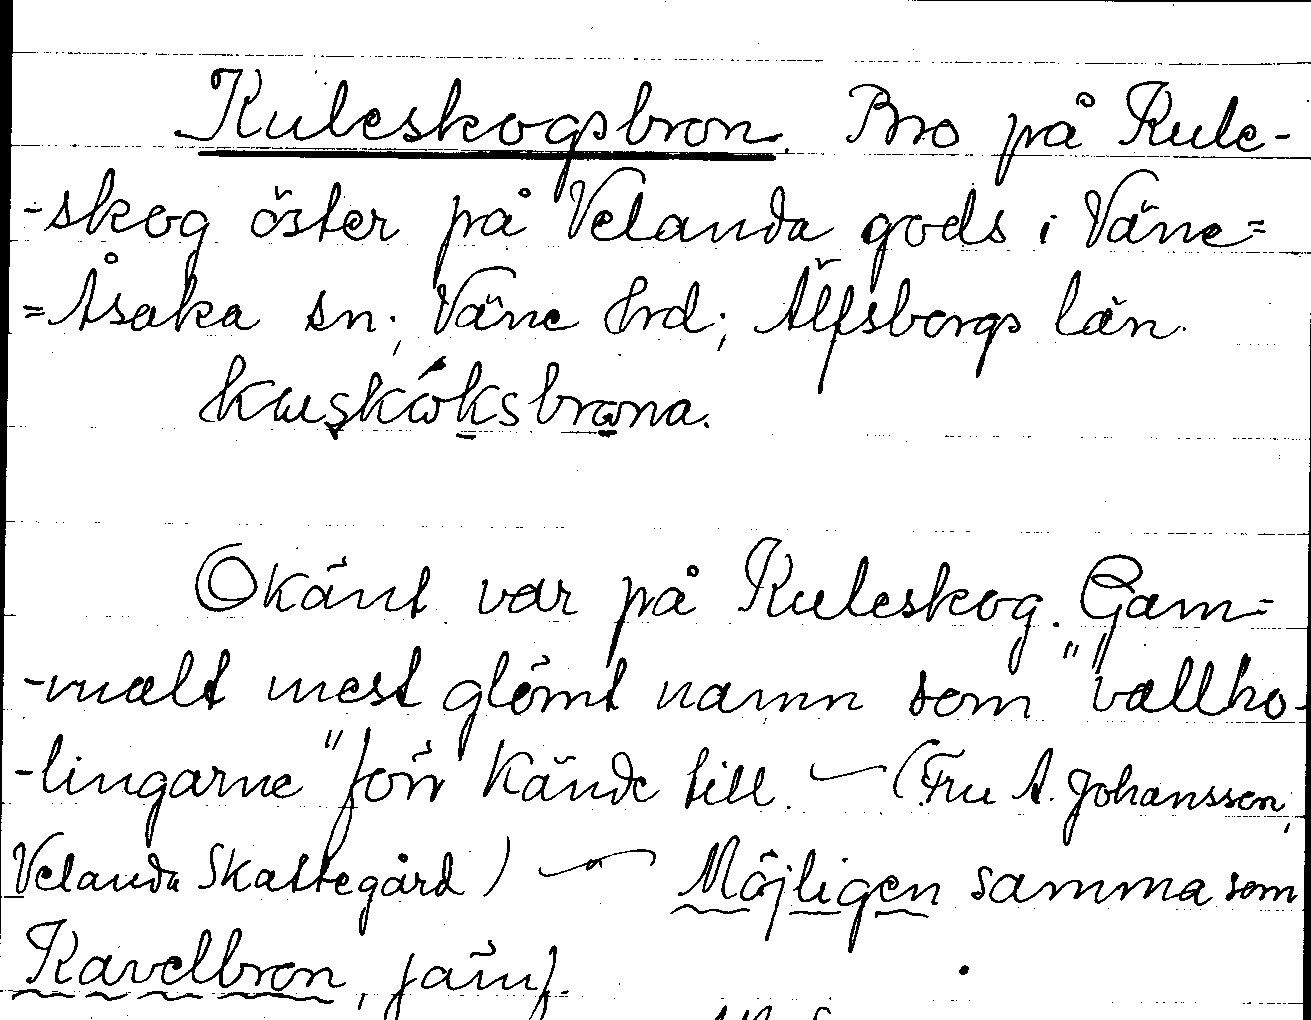 Kuleskogsbron. Bro på Kule-
-skog öster på Velanda gods i Väne=
=Åsaka sn; Väne Hrd; Älfsborgs län.
Okänt var på Kuleskog. Gam=
-malt mest glömt namn som "vallho-
-lingarne" förr kände till. — (Fru A. Johansson,
Velanda Skattegård) — Möjligen samma som
Kavelbron, jämf.